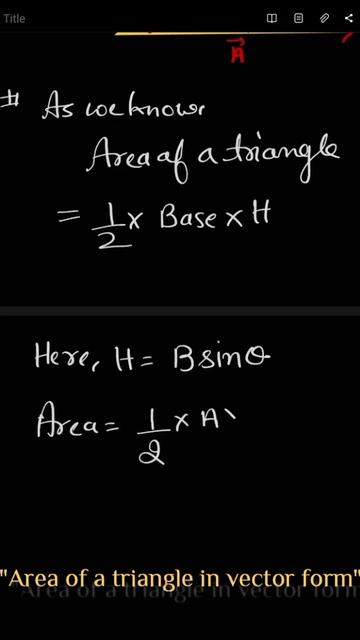 Title
A⃗
# As we know
Area of a triangle
= 1/2 × Base × H
Here, H = B sinθ
Area = 1/2 × A \
"Area of a triangle in vector form"